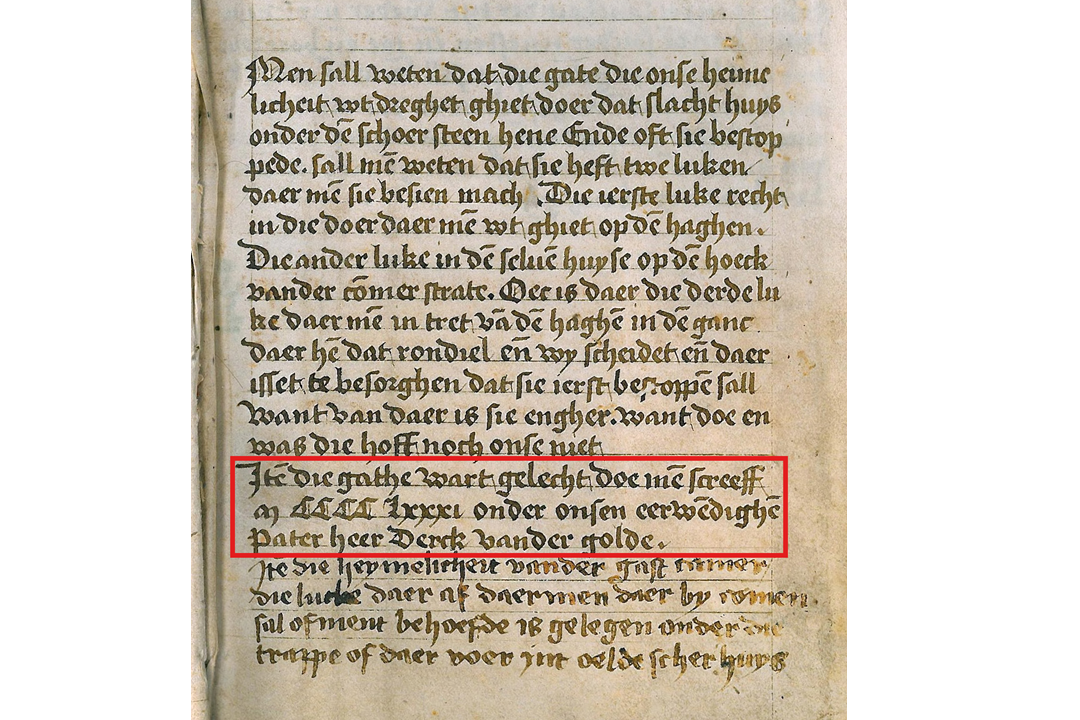 Men sall weten dat die gate die onse heime
licheit wt dreghet ghiet doer dat slacht huys
onder dē schoer steen hene Ende oft sie bestop
pede. sall mē weten dat sie heft twe luken
daer mē sie besien mach. Die ierste luke recht
in die doer daer mē wt ghiet op dē haghen.
Die ander luke in dē seluē huyse op dē hoeck
vander cōmer strate. Oec is daer die derde lu
ke daer mē in tret vā dē haghē in dē ganc
daer hē dat rondiel eñ wy scheidet eñ daer
isset te besorghen dat sie ierst bestoppē sall
want van daer is sie engher. want doe en
was die hoff noch onse niet
Itē die gathe wart gelecht doe mē screeff
m CCCC lxxxi onder onsen eerwēdighē
pater heer Derck vander golde.
Itē die heymelicheit vander gast camer
die lucke daer af daermen daer by comen
sal ofment behoefde is gelegen onder die
trappe of daer voer int oelde scher huys